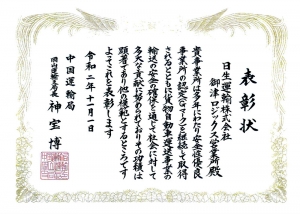 表彰状
日生運輸株式会社
御津ロジックス営業所殿
貴事業所は多年にわたり安全性優良
事業所の認定(Gマーク)を継続して取得
されるとともに貨物自動車運送事業の
輸送の安全の確保を通じて社会に対して
多大な貢献に努められておりその功績は
顕著であり他の模範とするところです
よってこれを表彰します
令和二年十一月一日
中国運輸局
岡山運輸支局長 神宝 博